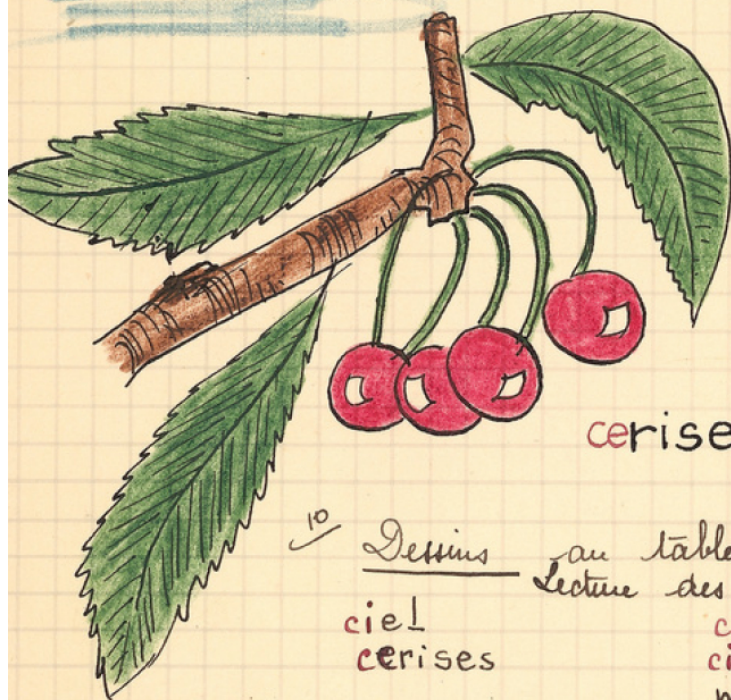 cerise
1º Dessins au table
Lecture des
ciel c
cerises ci